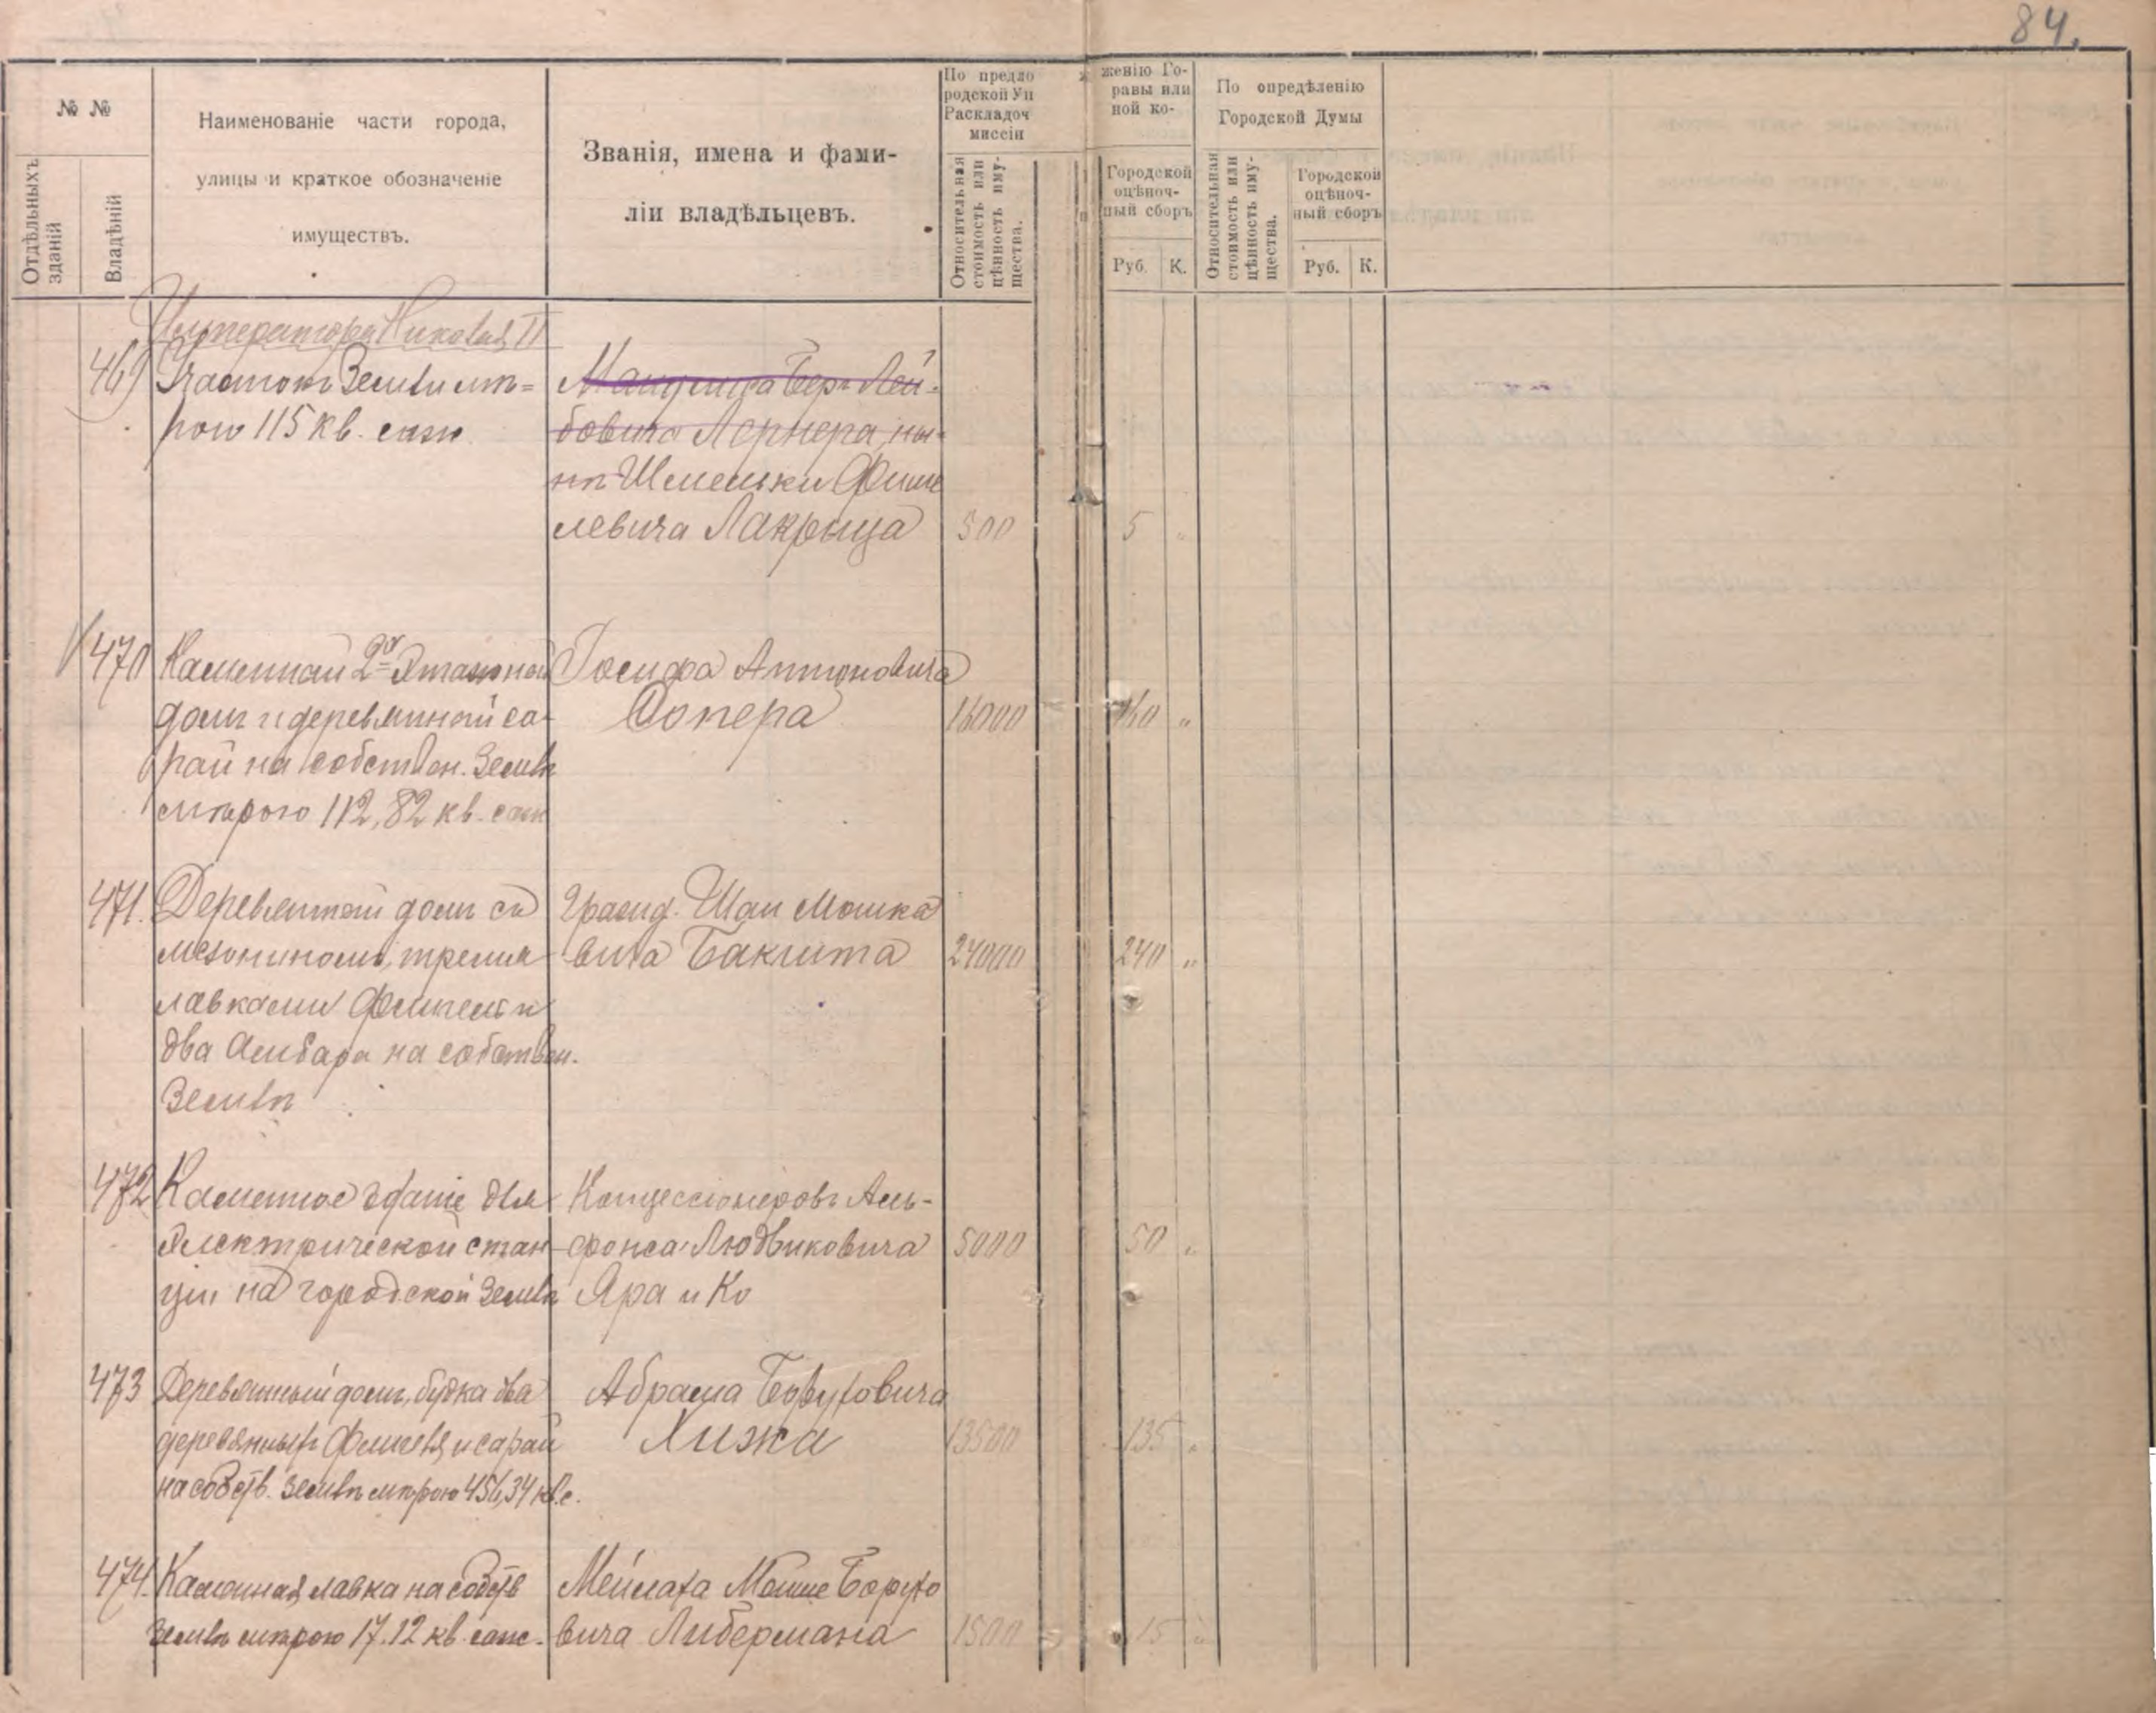 84.
№ №
Отдѣльныхъ зданій
Владѣній
Наименованіе части города,
улицы и краткое обозначеніе
имуществъ.
Званія, имена и фами-
ліи владѣльцевъ.
По предло
родской Уп
Раскладоч
миссіи
Относительная
стоимость или
цѣнность иму-
щества.
женію Го-
равы или
ной ко-
Городской
оцѣноч-
ный сборъ
Руб. К.
По опредѣленію
Городской Думы
Относительная
стоимость или
цѣнность иму-
щества.
Городской
оцѣноч-
ный сборъ
Руб. К.
Императора Николая II
469 Участокъ земли мѣ-
рою 115 кв. саж.
Беръ Лей-
бовича Лернера, ны-
нѣ Шлемки Фише
левича Лакрица 500 5 "
470 Каменный 2х этажной
домъ и деревяный са-
рай на собствен. землѣ
мѣрою 112,82 кв. саж
Іосифа Антоновича
Сопера 16000 160 "
471. Деревянный домъ съ
мезониномъ, тремя
лавками флигель и
два амбара на собствен.
землѣ
Гражд. Шаи Мошка
вича Бакшта 24000 240 "
472 Каменное зданіе для
электрической стан-
ціи на городской землѣ
Концессіонеровъ Аль-
фонса Людвиковича
Яра и Ко 5000 50 "
473 Деревянный домъ, будка два
деревянныхъ флигеля и сарай
на собств. землѣ мѣрою 456,34 кв. с.
Абрама Боруховича
Хижа 13500 135 "
474. Каменная лавка на собств
землѣ мѣрою 17.12 кв. саж.
Мейлаха Мовше Борухо
вича Либермана 1500 15 "